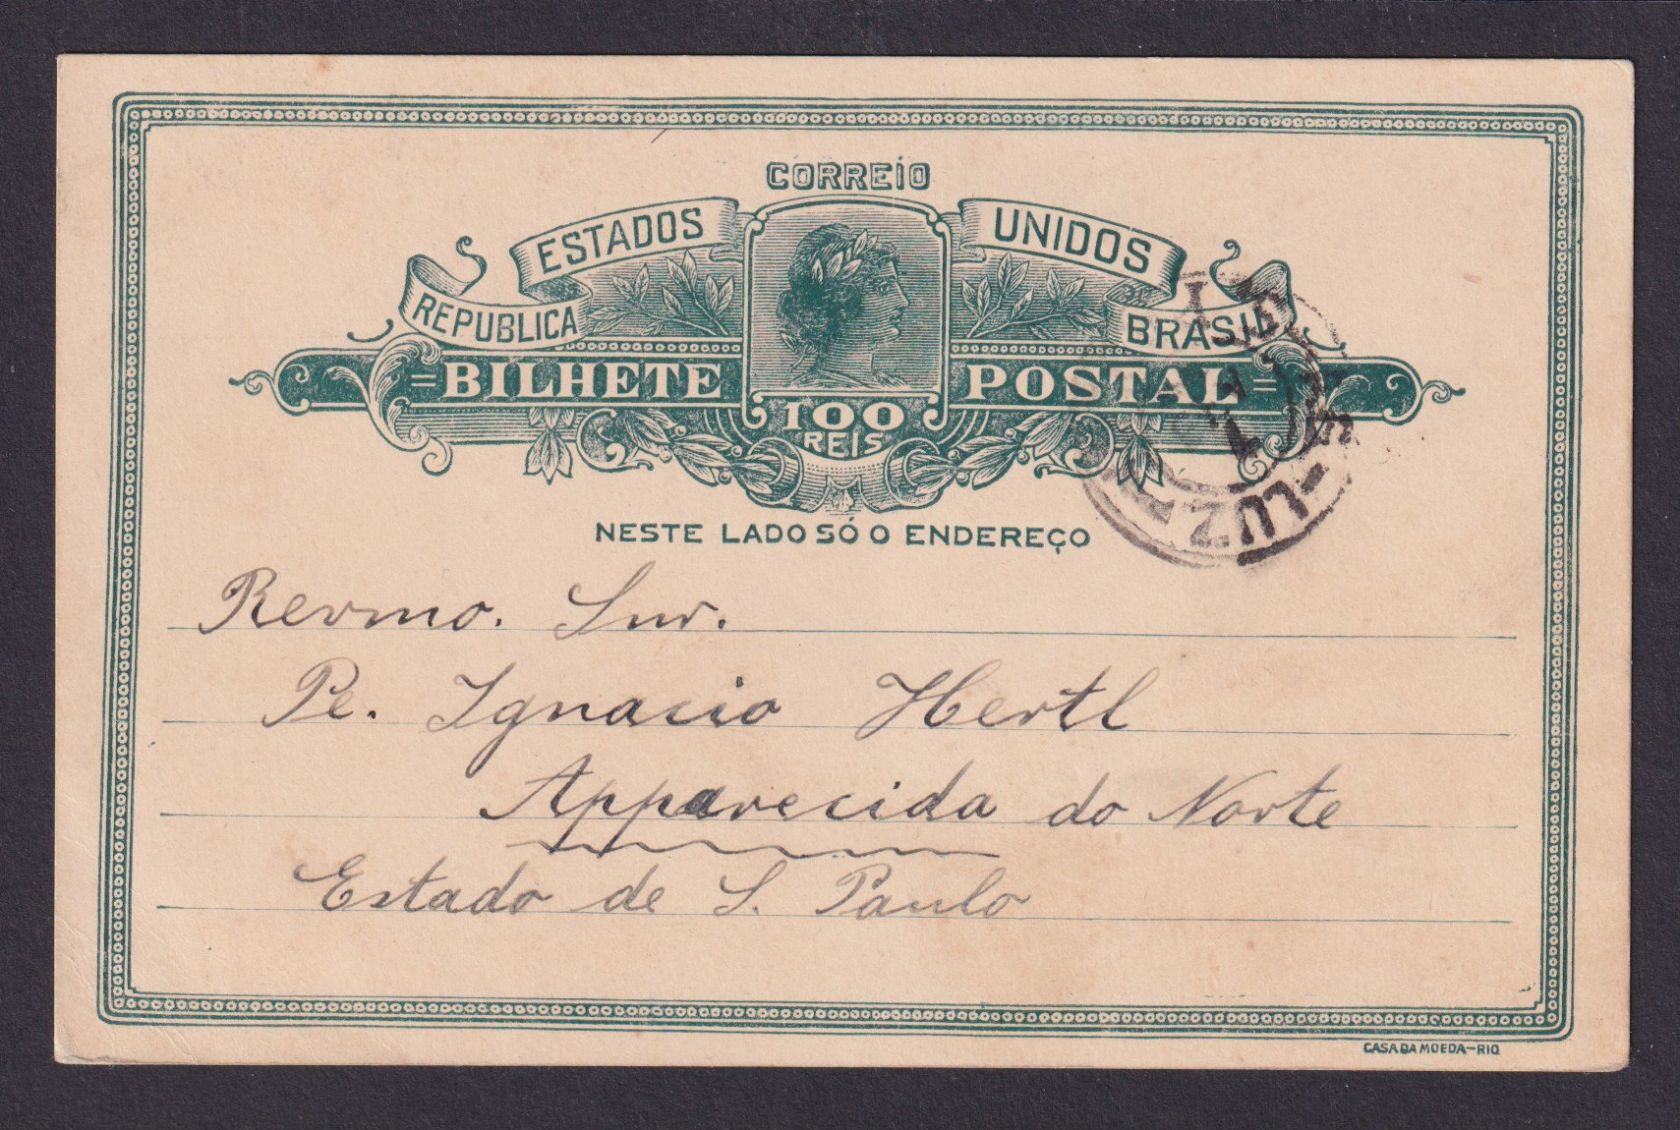 CORREIO
REPUBLICA ESTADOS UNIDOS BRASIL
=BILHETE POSTAL=
100
REIS
NESTE LADO SÓ O ENDEREÇO
LUZ
Revmo. Snr.
Pe. Ignacio Hertl
Apparecida do Norte
Estado de S. Paulo
CASA DA MOEDA-RIO